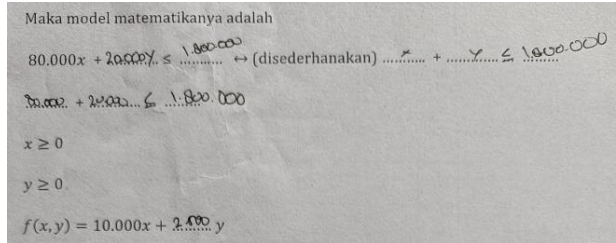 Maka model matematikanya adalah
80.000x + 20.000y ≤ 1.800.000 ↔ (disederhanakan) x + y ≤ 1.800.000
80.000 + 20.000 ≤ 1.800.000
x ≥ 0
y ≥ 0
f(x, y) = 10.000x + 2.500 y